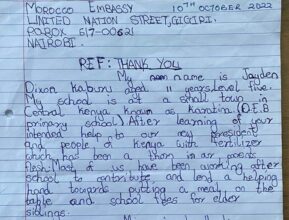 MOROCCO EMBASSY 10TH OCTOBER 2022
UNITED NATION STREET, GIGIRI.
P.O.BOX 617-00621
NAIROBI.
REF: THANK YOU
My name is Jayden
Dixon Kaburu aged 11 years level five.
My school is at a small town in
Central Kenya known as Karatina (D.E.B
primary school) After learning of your
intended help to our new president
and people of Kenya with fertilizer
which has been a thorn in our parent
flesh. Most of us have been working after
school to contribute and lend a helping
hand towards putting a meal on the
table and school fees for elder
siblings.